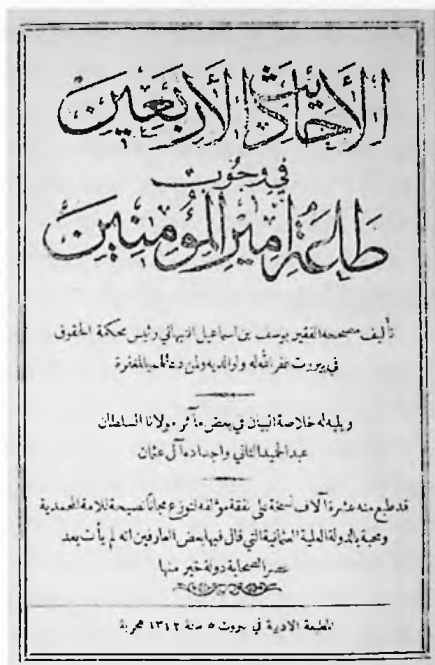 الأحاديث الأربعين
في وجوب
طاعة أمير المؤمنين
تأليف مصححه الفقير يوسف بن اسماعيل النبهاني رئيس محكمة الحقوق
في بيروت غفر الله له ولوالديه ولمن دعا لهم بالمغفرة
ويليه له خلاصة البيان في بعض مآثر مولانا السلطان
عبد الحميد الثاني واجداده آل عثمان
قد طبع منه عشرة آلاف نسخة على نفقة مؤلفه لتوزع مجاناً نصيحة للامة المحمدية
ومحبة بالدولة العلية العثمانية التي قال فيها بعض العارفين انه لم يأت بعد
عصر الصحابة دولة خير منها
المطبعة الادبية في بيروت سنة ١٣١٢ هجرية